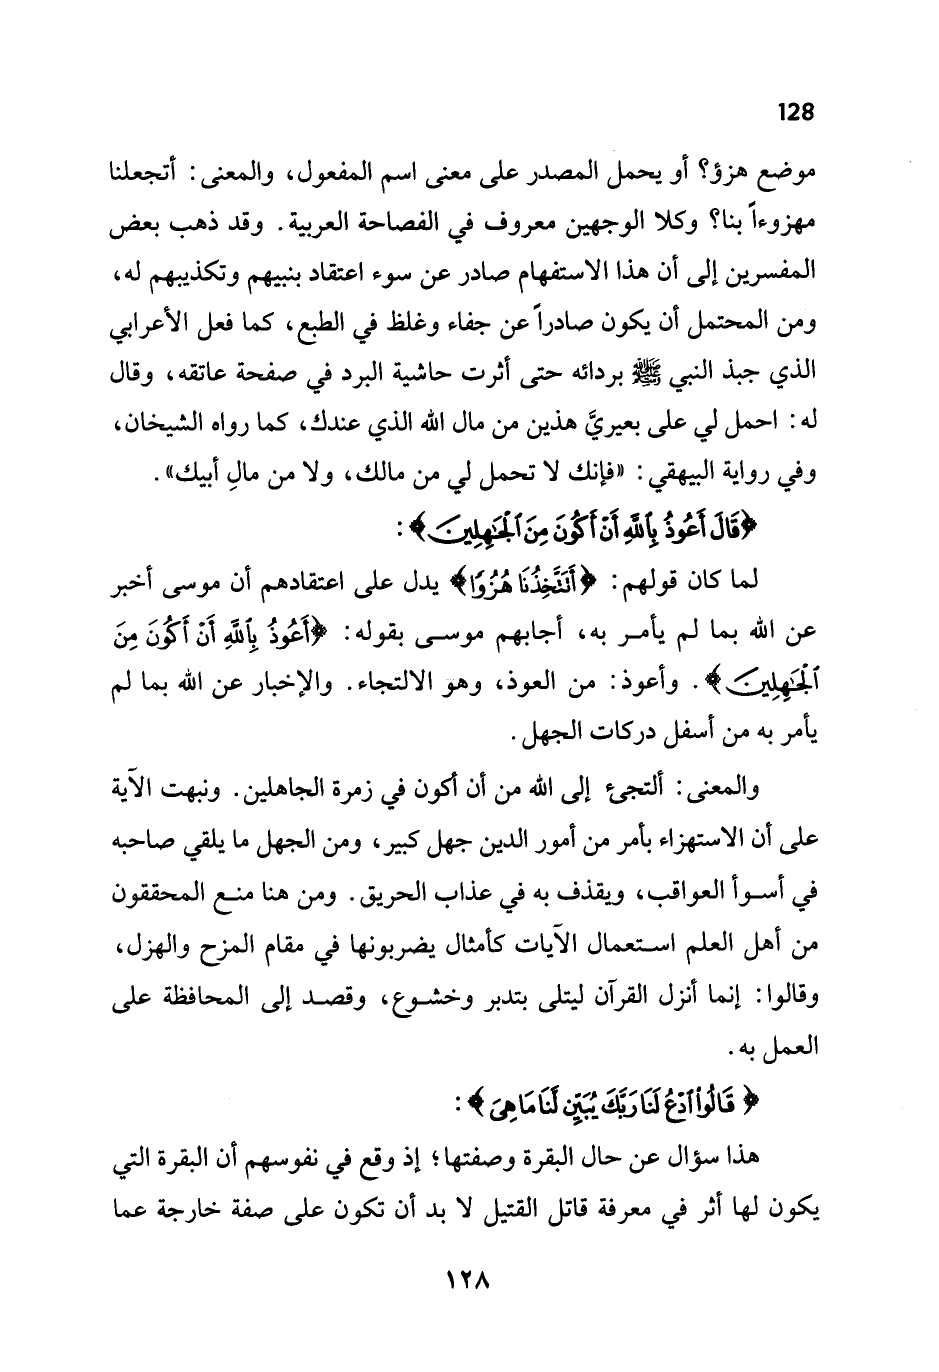 128
موضع هزؤ؟ أو يحمل المصدر على معنى اسم المفعول، والمعنى: أتجعلنا
مهزوءاً بنا؟ وكلا الوجهين معروف في الفصاحة العربية. وقد ذهب بعض
المفسرين إلى أن هذا الاستفهام صادر عن سوء اعتقاد بنبيهم وتكذيبهم له،
ومن المحتمل أن يكون صادراً عن جفاء وغلظ في الطبع، كما فعل الأعرابي
الذي جبذ النبي ﷺ بردائه حتى أثرت حاشية البرد في صفحة عاتقه، وقال
له: احمل لي على بعيريَّ هذين من مال الله الذي عندك، كما رواه الشيخان،
وفي رواية البيهقي: «فإنك لا تحمل لي من مالك، ولا من مالِ أبيك».
﴿قَالَ أَعُوذُ بِٱللَّهِ أَنْ أَكُونَ مِنَ ٱلْجَٰهِلِينَ﴾:
لما كان قولهم: ﴿أَتَتَّخِذُنَا هُزُوًا﴾ يدل على اعتقادهم أن موسى أخبر
عن الله بما لم يأمر به، أجابهم موسى بقوله: ﴿أَعُوذُ بِٱللَّهِ أَنْ أَكُونَ مِنَ
ٱلْجَٰهِلِينَ﴾. وأعوذ: من العوذ، وهو الالتجاء. والإخبار عن الله بما لم
يأمر به من أسفل دركات الجهل.
والمعنى: ألتجئ إلى الله من أن أكون في زمرة الجاهلين. ونبهت الآية
على أن الاستهزاء بأمر من أمور الدين جهل كبير، ومن الجهل ما يلقي صاحبه
في أسوأ العواقب، ويقذف به في عذاب الحريق. ومن هنا منع المحققون
من أهل العلم استعمال الآيات كأمثال يضربونها في مقام المزح والهزل،
وقالوا: إنما أنزل القرآن ليتلى بتدبر وخشوع، وقصد إلى المحافظة على
العمل به.
﴿قَالُوا۟ ٱدْعُ لَنَا رَبَّكَ يُبَيِّن لَّنَا مَا هِىَ﴾:
هذا سؤال عن حال البقرة وصفتها؛ إذ وقع في نفوسهم أن البقرة التي
يكون لها أثر في معرفة قاتل القتيل لا بد أن تكون على صفة خارجة عما
١٢٨